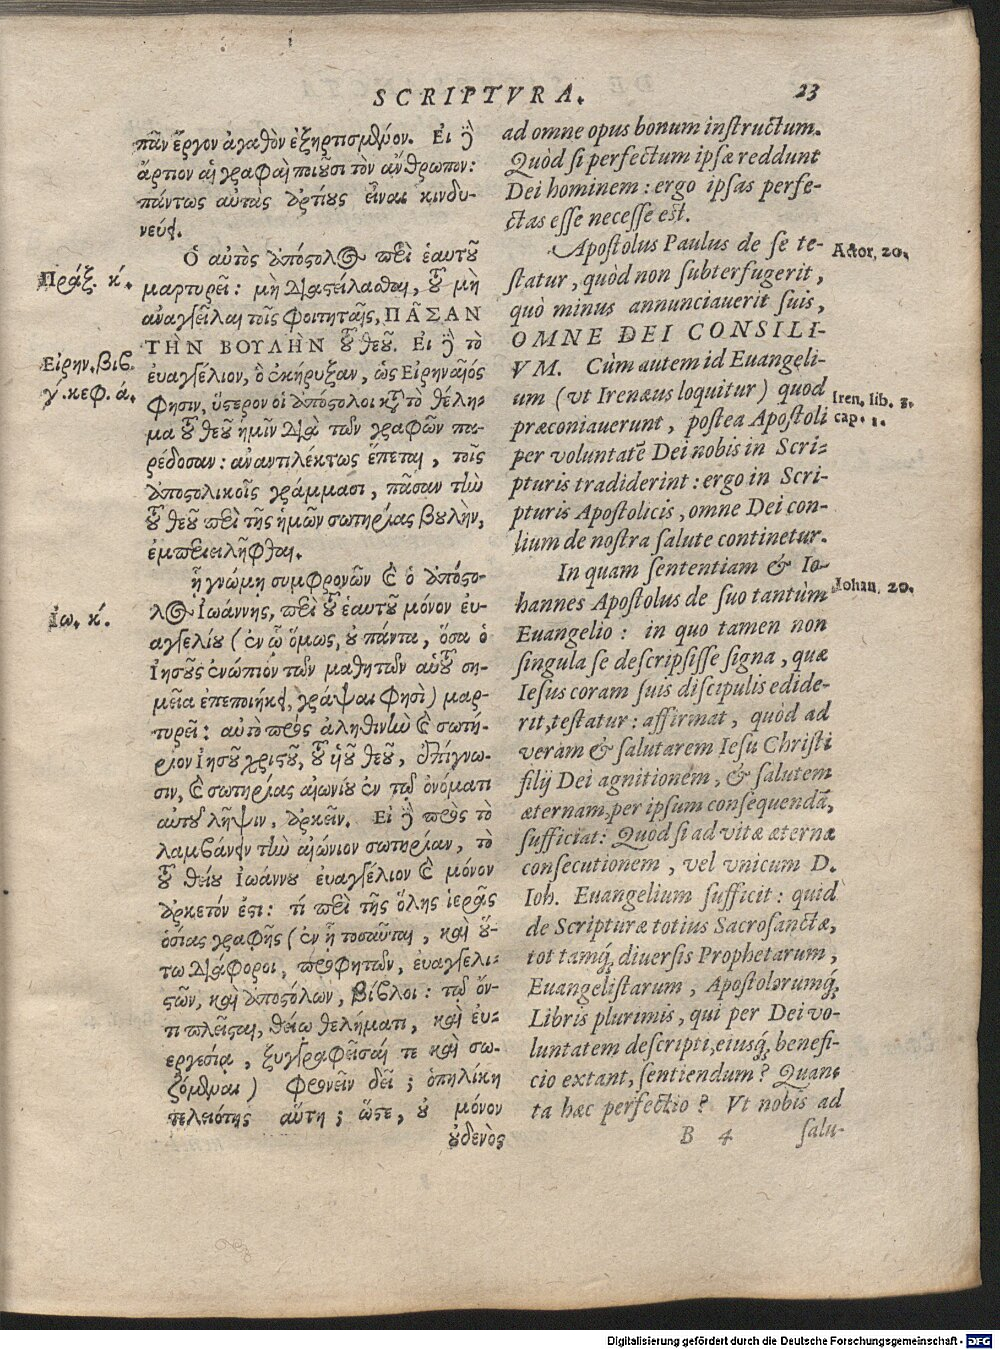 SCRIPTVRA.
23
πᾶν ἔργον ἀγαθὸν ἐξηρτισμένον. Εἰ δὲ
ἄρτιον αἱ γραφαὶ ποιοῦσι τὸν ἄνθρωπον:
πάντως αὐτὰς ἀρτίους εἶναι κινδυ-
νεύει.
Ὁ αὐτὸς ἀπόστολος περὶ ἑαυτοῦ
Πράξ. κ΄.
μαρτυρεῖ: μὴ διαστείλασθαι, τοῦ μὴ
ἀναγγεῖλαι τοῖς φοιτηταῖς, ΠΑ͂ΣΑΝ
ΤῊΝ ΒΟΥΛῊΝ τοῦ θεοῦ. Εἰ δὲ τὸ
Εἰρην. βιβ.
εὐαγγέλιον, ὃ ἐκήρυξαν, ὡς Εἰρηναῖός
γ΄. κεφ. ά.
φησιν, ὕστερον οἱ ἀπόστολοι κατὰ τὸ θέλη-
μα τοῦ θεοῦ ἡμῖν διὰ τῶν γραφῶν πα-
ρέδοσαν: ἀναντιλέκτως ἕπεται, τοῖς
ἀποστολικοῖς γράμμασι, πᾶσαν τὴν
τοῦ θεοῦ περὶ τῆς ἡμῶν σωτηρίας βουλὴν,
ἐμπεριειλῆφθαι.
ᾗ γνώμῃ συμφρονῶν καὶ ὁ ἀπόστο-
Ἰω. κ΄.
λος Ἰωάννης, περὶ τοῦ ἑαυτοῦ μόνον εὐ-
αγγελίου (ἐν ᾧ ὅμως, οὐ πάντα, ὅσα ὁ
Ἰησοῦς ἐνώπιον τῶν μαθητῶν αὐτοῦ ση-
μεῖα ἐπεποιήκει, γράψαι φησὶ) μαρ-
τυρεῖ: αὐτὸ πρὸς ἀληθινὴν καὶ σωτή-
ριον Ἰησοῦ χριστοῦ, τοῦ υἱοῦ θεοῦ, ἐπίγνω-
σιν, καὶ σωτηρίας αἰωνίου ἐν τῷ ὀνόματι
αὐτοῦ λῆψιν, ἀρκεῖν. Εἰ δὲ πρὸς τὸ
λαμβάνειν τὴν αἰώνιον σωτηρίαν, τὸ
τοῦ θείου Ἰωάννου εὐαγγέλιον καὶ μόνον
ἀρκετόν ἐστι: τί περὶ τῆς ὅλης ἱερᾶς
ὁσίας γραφῆς (ἐν ᾗ τοσαῦται, καὶ οὕ-
τω διάφοροι, προφητῶν, εὐαγγελι-
στῶν, καὶ ἀποστόλων, βίβλοι: τῷ ὄν-
τι πλεῖσται, θείῳ θελήματι, καὶ εὐ-
εργεσίᾳ, ξυγγραφεῖσαί τε καὶ σω-
ζόμεναι) φρονεῖν δεῖ; ὁπηλίκη
τελειότης αὕτη; ὥστε, οὐ μόνον
οὐδενὸς
ad omne opus bonum instructum.
Quòd si perfectum ipsæ reddunt
Dei hominem: ergo ipsas perfe-
ctas esse necesse est.
Apostolus Paulus de se te-
Actor. 20.
statur, quòd non subterfugerit,
quò minus annunciauerit suis,
OMNE DEI CONSILI-
VM. Cùm autem id Euangeli-
um (vt Irenæus loquitur) quod
Iren. lib. 3.
præconiauerunt, postea Apostoli
cap. 1.
per voluntatē Dei nobis in Scri-
pturis tradiderint: ergo in Scri-
pturis Apostolicis, omne Dei con-
lium de nostra salute continetur.
In quam sententiam & Io-
Iohan. 20.
hannes Apostolus de suo tantùm
Euangelio: in quo tamen non
singula se descripsisse signa, quæ
Iesus coram suis discipulis edide-
rit, testatur: affirmat, quòd ad
veram & salutarem Iesu Christi
filij Dei agnitionem, & salutem
æternam, per ipsum consequendā,
sufficiat: Quod si ad vitæ æternæ
consecutionem, vel vnicum D.
Ioh. Euangelium sufficit: quid
de Scripturæ totius Sacrosanctæ,
tot tamq́, diuersis Prophetarum,
Euangelistarum, Apostolorumq́,
Libris plurimis, qui per Dei vo-
luntatem descripti, eiusq́, benefi-
cio extant, sentiendum? Quan-
ta hæc perfectio? Vt nobis ad
B 4
salu-
Digitalisierung gefördert durch die Deutsche Forschungsgemeinschaft - DFG